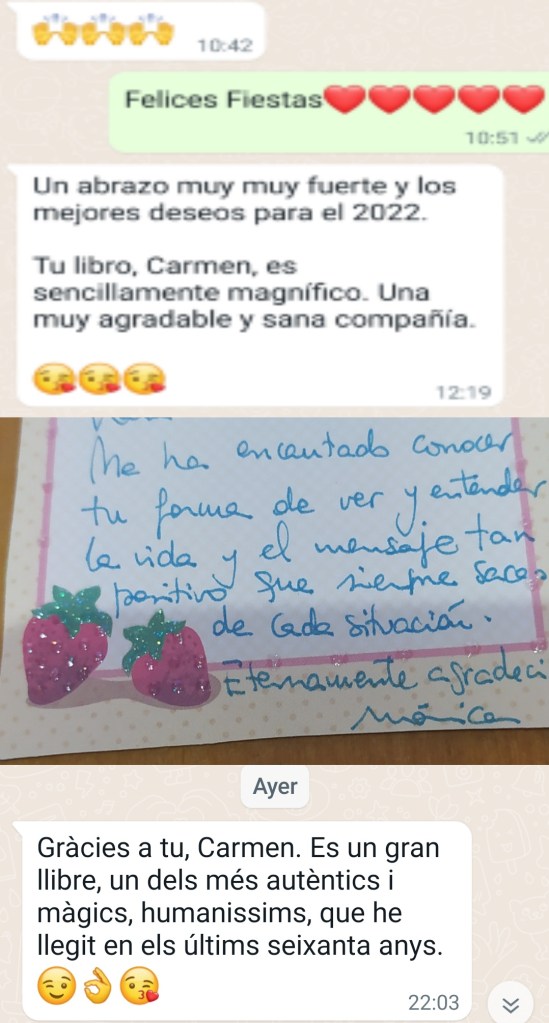 🙌🙌🙌 10:42
Felices Fiestas❤️❤️❤️❤️❤️
10:51
Un abrazo muy muy fuerte y los
mejores deseos para el 2022.
Tu libro, Carmen, es
sencillamente magnífico. Una
muy agradable y sana compañía.
😘😘😘
12:19
Me ha encantado conocer
tu forma de ver y entender
la vida y el mensaje tan
positivo que siempre sacas
de cada situación.
Eternamente agradeci
Mónica
Ayer
Gràcies a tu, Carmen. Es un gran
llibre, un dels més autèntics i
màgics, humanissims, que he
llegit en els últims seixanta anys.
😉👌😘
22:03